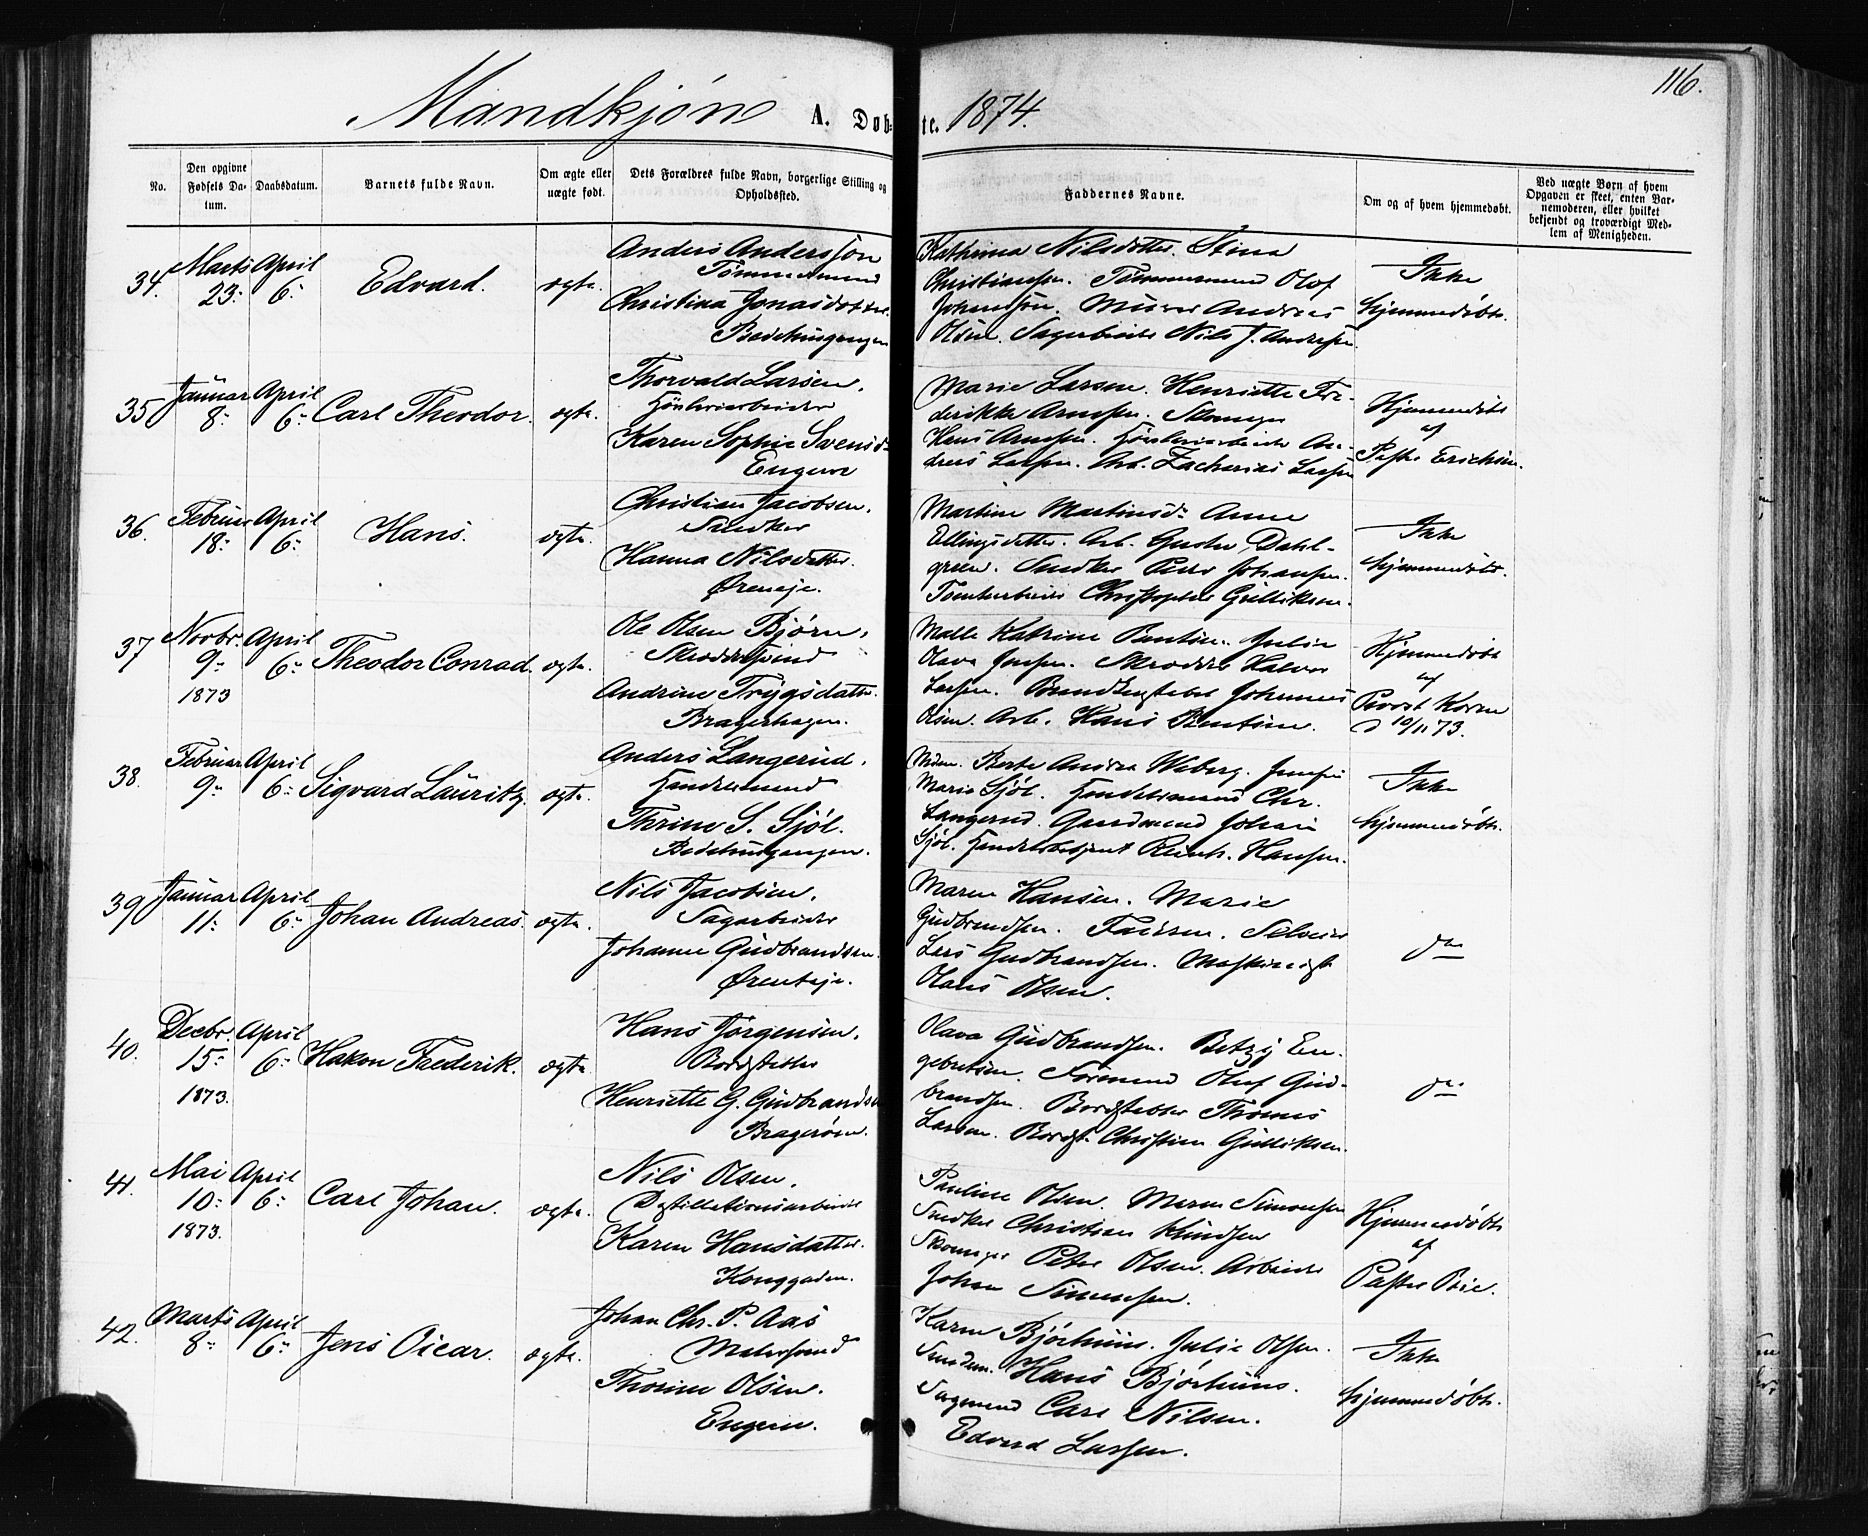 116.
Mandkjøn A. Døbte. 1874.
No.
Den opgivne Fødsels Datum.
Daabsdatum.
Barnets fulde Navn.
Om ægte eller uægte født.
Dets Forældres fulde Navn, borgerlige Stilling og Opholdssted.
Faddernes Navne.
Om og af hvem hjemmedøbt.
Ved uægte Børn af hvem Opgaven er skeet, enten Barnemoderen, eller hvilket bekjendt og troværdigt Medlem af Menigheden.
34. Marts 23. April 6. Edvard. ægte.
Anders Andersson
Tømmermand
Christina Jonasdotter.
Badehusgangen
Kathrina Nilsdotter. Stina
Christiansen. Tømmermand Olof
Johansson. Murer Andreas
Olsen. Sagarbeider Nils J. Andersen.
Ikke
hjemmedøbt.
35 Januar 8. April 6. Carl Theodor. ægte.
Thorvald Larsen.
Karen Sophie Svensd.
Engene
Marie Larsen. Henriette Fre-
derikke Arnesen. Skomager
Hans Arnesen. An-
dreas Larsen. Arb. Zacharias Larsen
Hjemmedøbt
af
Pastor Erichsen.
36. Februar 18. April 6. Hans. ægte.
Christian Jacobsen.
Snedker
Hanna Nilsdatter.
Øreneje.
Martine Martinsd. Anne
Ellingsdatter. Arb. Gustav Dahl-
green. Snedker Peder Johansen.
Tomtearbeider Christopher Gulliksen.
Ikke
hjemmedøbt.
37 Novbr. 9. 1873 April 6. Theodor Conrad. ægte.
Ole Olsen Bjørn.
Skrædersvend
Andrine Trygsdatter.
Bragerhagen.
Malle Katrine Bentsen. Julie
Olava Jensen. Skrædder Halvor
Larsen. Brandkonstabel Johannes
Olsen. Arb. Hans Bentsen.
Hjemmedøbt
af
Provst Koren
d 10/11 73.
38. Februar 9. April 6. Sigvard Lauritz. ægte.
Anders Langerud.
Handelsmand
Thrine S. Sjøl.
Badehusgangen.
Berte Andrea Weberg.
Marie Sjøl. Handelsmand Chr.
Langerud. Gaardmand Johan
Sjøl. Handelsbetjent Reinh. Hansen.
Ikke
hjemmedøbt.
39 Januar 11. April 6. Johan Andreas. ægte.
Nils Jacobsen.
Sagarbeider
Johanne Gudbrandsen.
Ørenteje.
Maren Hansen. Marie
Gudbrandsen.
Lars Gudbrandsen. Maskinist
Olaus Olsen.
do
40. Decbr. 15. 1873. April 6. Hakon Frederik. ægte.
Hans Jørgensen.
Bordstabler
Henriette G. Gudbrandsen
Bragerøen.
Olava Gudbrandsen. Betzy En-
gebretsen. Formand Oluf Gud-
brandsen. Bordstabler Thomas
Larsen. Bordst. Christian Gulliksen.
do
41. Mai 10. 1873. April 6. Carl Johan. ægte.
Nils Olsen.
Destillationsarbeider
Karen Hansdatter.
Konggaden.
Pauline Olsen. Maren Simonsen
Snedker Christian Knudsen
Skomager Peter Olsen. Arbeider
Johan Simensen.
Hjemmedøbt
af
Pastor Bie.
42. Marts 8. April 6. Jens Oscar. ægte.
Johan Chr. P. Aas
Malersvend
Thorine Olsen.
Engene.
Karen Bjørhuus. Julie Olsen.
Hans Bjørhuus.
Sagmand Carl Nilsen.
Edvard Larsen.
Ikke
hjemmedøbt.